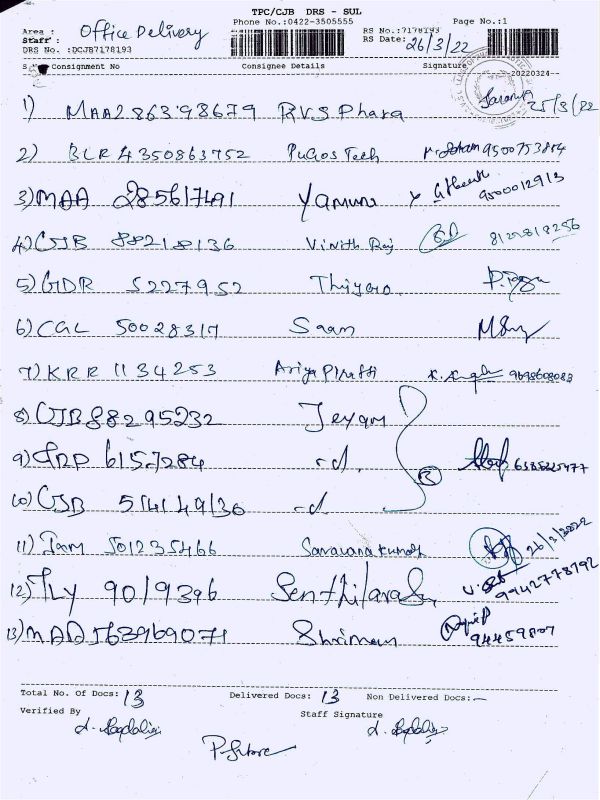 TPC/CJB DRS - SUL
Phone No.:0422-3505555 Page No.:1
Area : Office Delivery RS No.:7178193
Staff : RS Date: 26/3/22
DRS No. :DCJB7178193
Consignment No Consignee Details Signature
20220324
1) MAA286398679 RVS Phara Saranya 25/3/22
2) BLR 4350863752 PuGos Tech 9500753884
3) MAA 285617491 Yamuna 9500012913
4) CJB 88218136 Vinith Raj 8122818256
5) GDR 5227952 Thiyaro
6) CGL 50028317 Saam
7) KRR 1134253 Ariya 9698608083
8) CJB 88295232 Jeyam
9) TRP 6157284 -d 6385225977
10) CJB 514149136 -d
11) 501235466 Saravanakumar 26/3/2022
12) TLY 9019396 Senthil 9942778192
13) MAA 563969071 Shriman 94459807
Total No. Of Docs: 13 Delivered Docs: 13 Non Delivered Docs:-
Verified By Staff Signature